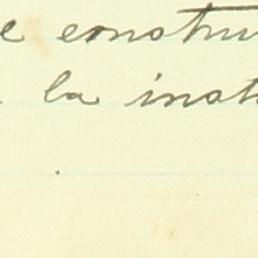 e constru
la inst